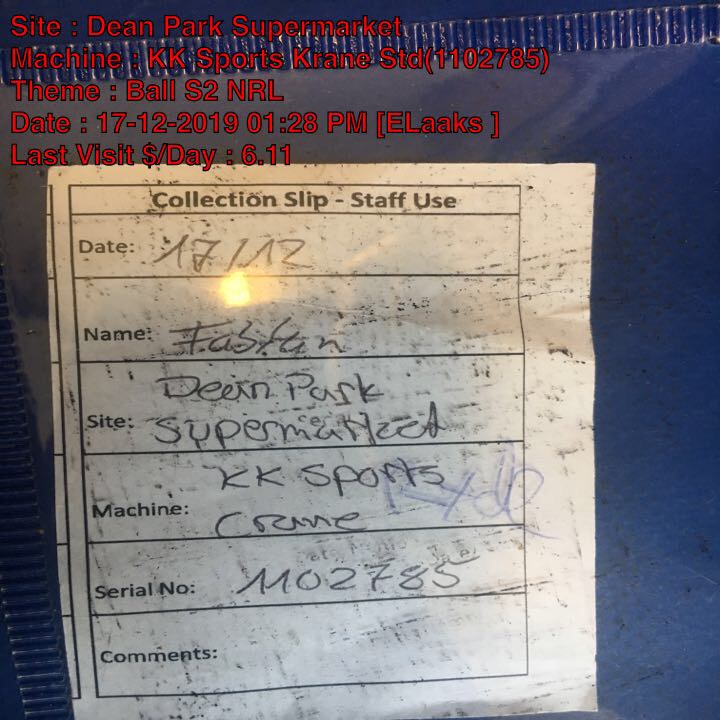 Site : Dean Park Supermarket
Machine : KK Sports Krane Std(1102785)
Theme : Ball S2 NRL
Date : 17-12-2019 01:28 PM [ELaaks ]
Last Visit $/Day : 6.11
Collection Slip - Staff Use
Date: 17/12
Name: Fabian
Dean Park
Site: Supermarket
KK Sports
Machine: Crane
Serial No: 1102785
Comments: